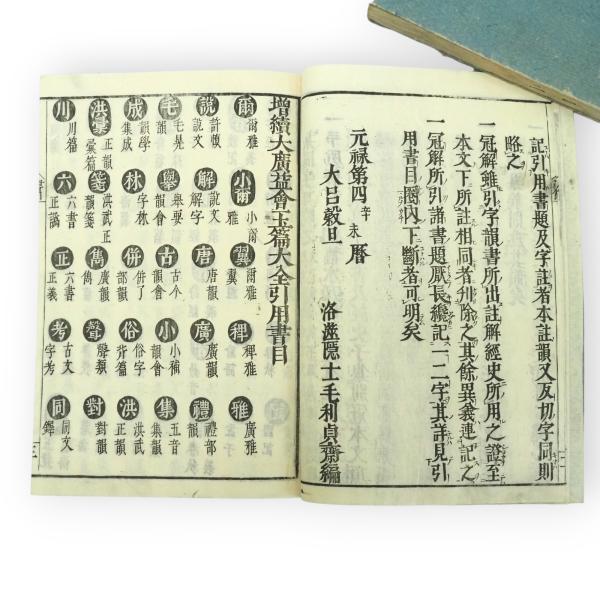 記引用書題及字註者本註韻又反切字同則
略之
一冠解雖引字韻書所出註解經史所用之證至
本文下所註相同者刋除之其餘異義連記之
一冠解所引諸書題厥長纔記一二字其詳見引
用書目圏內下斷者可明矣
元禄第四辛未曆
大呂穀旦
洛澨隱士毛利貞齋編
增續大廣益會玉篇大全引用書目
爾 爾雅
小爾 小爾雅
翼 爾雅翼
稗 稗雅
雅 廣雅
說 許愼說文
解 說文解字
唐 唐韻
廣 廣韻
禮 禮部韻
毛 毛晃韻
舉 舉要
古 古今韻會
小 小補韻會
集 五音集韻
成 韻學集成
林 字林
併 併了部韻
俗 俗字背篇
洪 洪武正韻
洪彙 正韻彙篇
箋 洪武正韻箋
雋 廣韻雋
聲 聲類
對 對韻
川 川篇
六 六書正譌
正 六書正義
考 古文字考
同 同文鐸